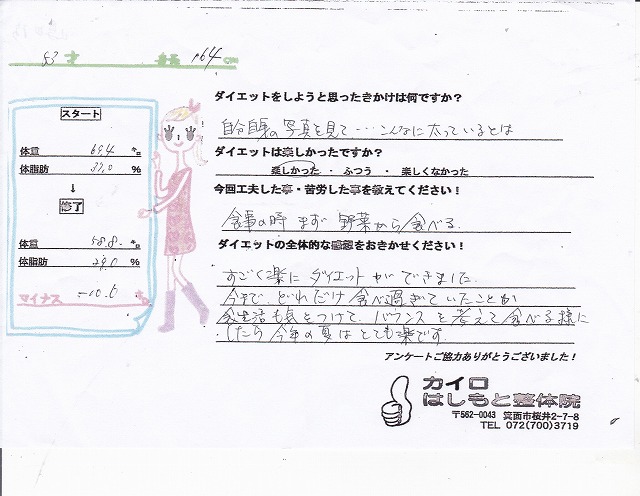 53 才 身長 164 cm
スタート
体重 69.4 kg
体脂肪 37.0 %
↓
終了
体重 58.8 kg
体脂肪 29.0 %
マイナス -10.6 kg
ダイエットをしようと思ったきかけは何ですか?
自分自身の写真を見て…こんなに太っているとは
ダイエットは楽しかったですか?
楽しかった ・ ふつう ・ 楽しくなかった
今回工夫した事・苦労した事を教えてください!
食事の時 まず 野菜から食べる.
ダイエットの全体的な感想をおきかせください!
すごく楽に ダイエット ができました.
今まで、どれだけ 食べ過ぎていたことか
食生活も気をつけて、バランスを考えて食べる様に
したら 今年の夏は とても楽です.
アンケートご協力ありがとうございました!
カイロ
はしもと整体院
〒562-0043 箕面市桜井2-7-8
TEL 072(700)3719